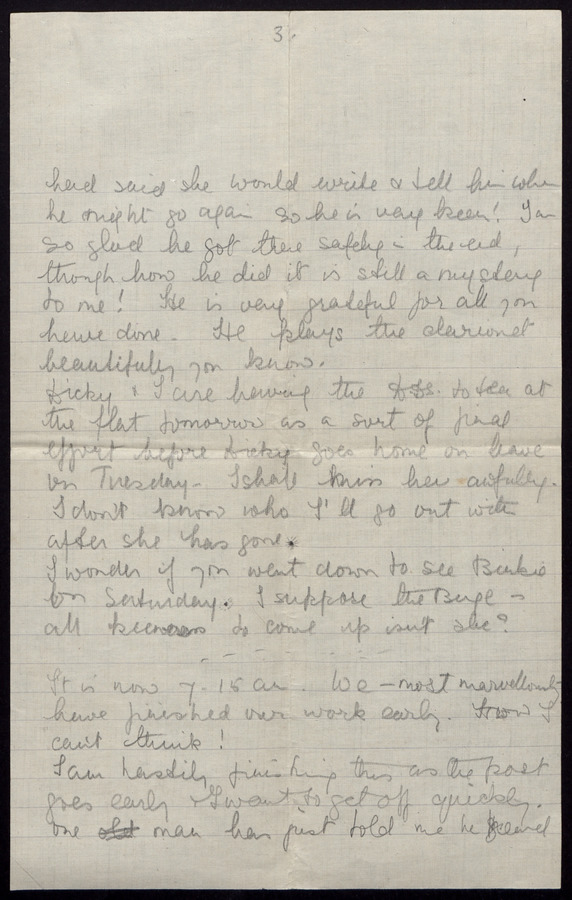 3.
had said she would write & tell him when
he might go again so he is very keen! I am
so glad he got there safely in the end,
though how he did it is still a mystery
to me! He is very grateful for all you
have done. He plays the clarionet
beautifully you know.
Dicky & I are having the to tea at
the flat tomorrow as a sort of final
effort before Dicky goes home on leave
on Tuesday - I shall miss her awfully.
I don't know who I'll go out with
after she has gone.
I wonder if you went down to see Binkie
on Saturday. I suppose the is
all to come up isn't she?
It is now 7.15 am. We - most marvellously
have finished our work early. How I
can't think!
I am hastily finishing this as the post
goes early & I want to get off quickly.
One man has just told me he